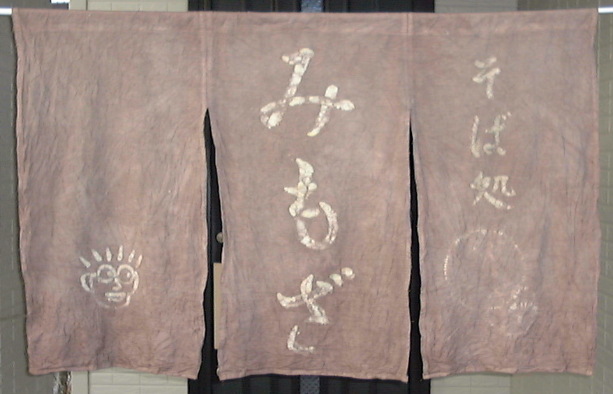 そば処
みもざ